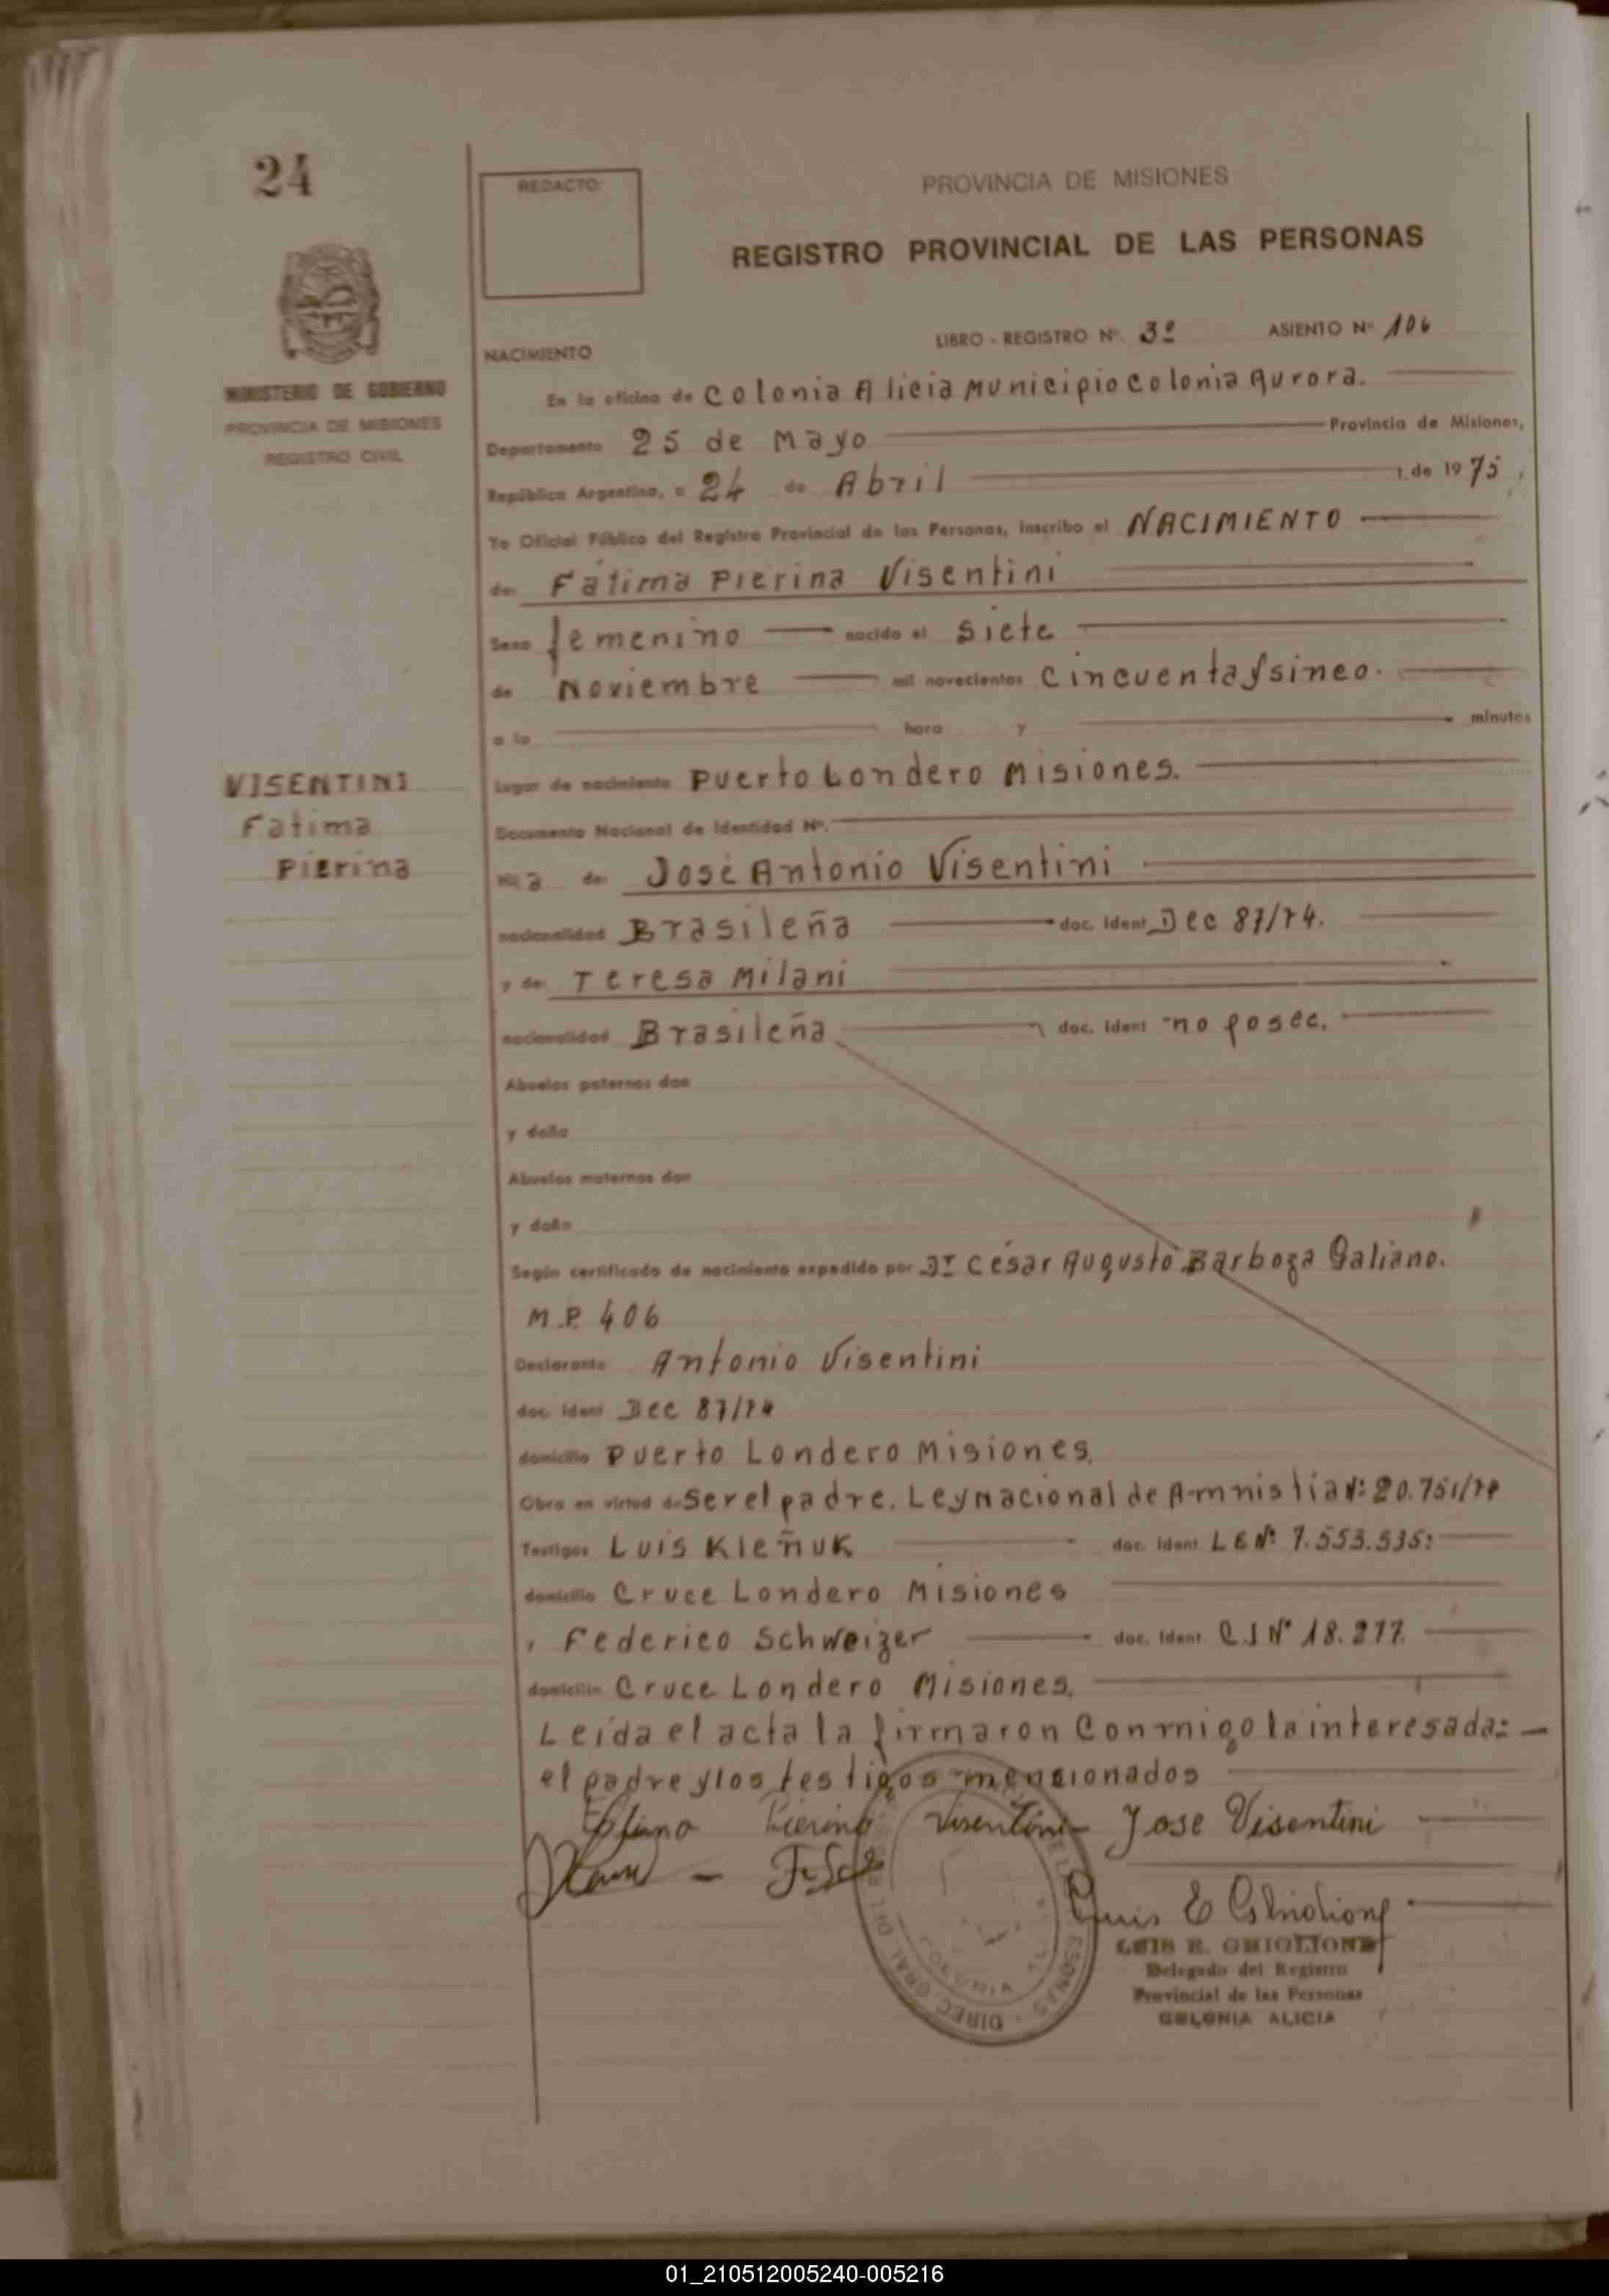 24
REDACTO:
PROVINCIA DE MISIONES
REGISTRO PROVINCIAL DE LAS PERSONAS
MINISTERIO DE GOBIERNO
PROVINCIA DE MISIONES
REGISTRO CIVIL
NACIMIENTO
LIBRO - REGISTRO Nº. 3º ASIENTO Nº 106
En la oficina de Colonia Alicia Municipio Colonia Aurora.
Departamento 25 de Mayo Provincia de Misiones,
República Argentina, a 24 de Abril de 1975,
Yo Oficial Público del Registro Provincial de las Personas, inscribo el NACIMIENTO
de: Fátima Pierina Visentini
Sexo femenino nacido el siete
de Noviembre mil novecientos Cincuenta y sinco.
a la hora y minutos
Lugar de nacimiento Puerto Londero Misiones.
VISENTINI
Fatima
Pierina
Documento Nacional de Identidad Nº.
Hija de: José Antonio Visentini
nacionalidad Brasileña doc. Ident. Dec 87/74.
y de: Teresa Milani
nacionalidad Brasileña doc. Ident no posee.
Abuelos paternos don
y doña
Abuelos maternos don
y doña
Según certificado de nacimiento expedido por Dr César Augusto Barboza Galiano.
M.P. 406
Declarante Antonio Visentini
doc. ident Dec 87/74
domicilio Puerto Londero Misiones.
Obra en virtud de Ser el padre. Ley Nacional de Amnistia Nº 20.751/74
Testigos Luis Kleñuk doc. Ident. LE Nº 7.553.535:
domicilio Cruce Londero Misiones
y Federico Schweizer doc. Ident. C.I Nº 18.277.
domicilio Cruce Londero Misiones.
Leída el acta la firmaron Conmigo la interesada:
el padre y los testigos mencionados
Pierina Visentini Jose Visentini
Luis E Ghiglione
LUIS E. GHIGLIONE
Delegado del Registro
Provincial de las Personas
COLONIA ALICIA
01_210512005240-005216